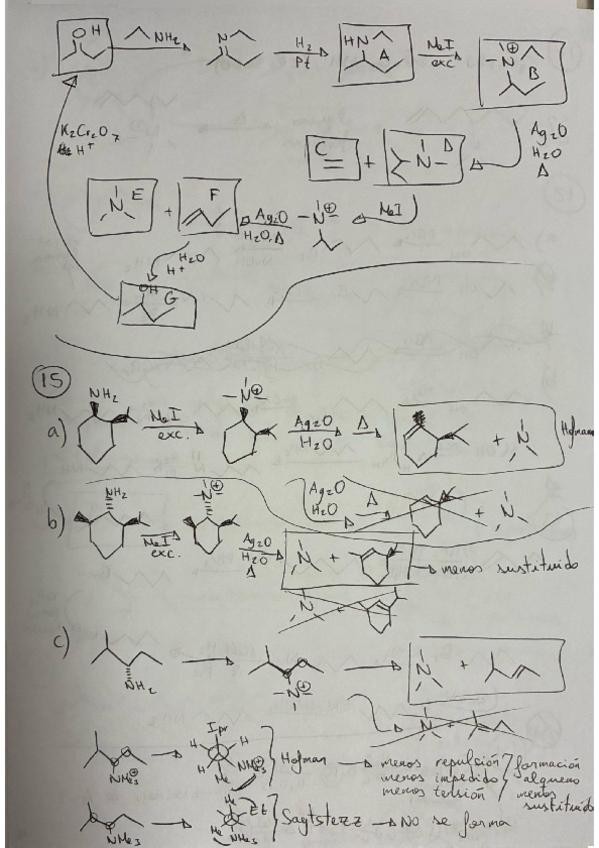 O H
NH2
N
H2
Pt
HN
A
MeI
exc
⊕
-N-
B
K2Cr2O7
H+
C
+
-N-
D
Ag2O
H2O
Δ
N E
+
F
Ag2O
H2O, Δ
-N-
⊕
MeI
H2O
H+
OH
G
15
a)
NH2
MeI
exc.
-N-
⊕
Ag2O
H2O
Δ
+ N
Hofmann
b)
NH2
MeI
exc.
-N-
⊕
Ag2O
H2O
Δ
+ N
Ag2O
H2O
Δ
N +
menos sustituido
N +
c)
NH2
-N-
⊕
N +
N +
NMe3
⊕
Ipr
H H
H NMe3
⊕
Me
Hofman
menos repulsión
menos impedido
menos tensión
formación
alqueno
menos
sustituido
NMe3
Me
Et
Me
NMe3
Saytsterz
NO se forma